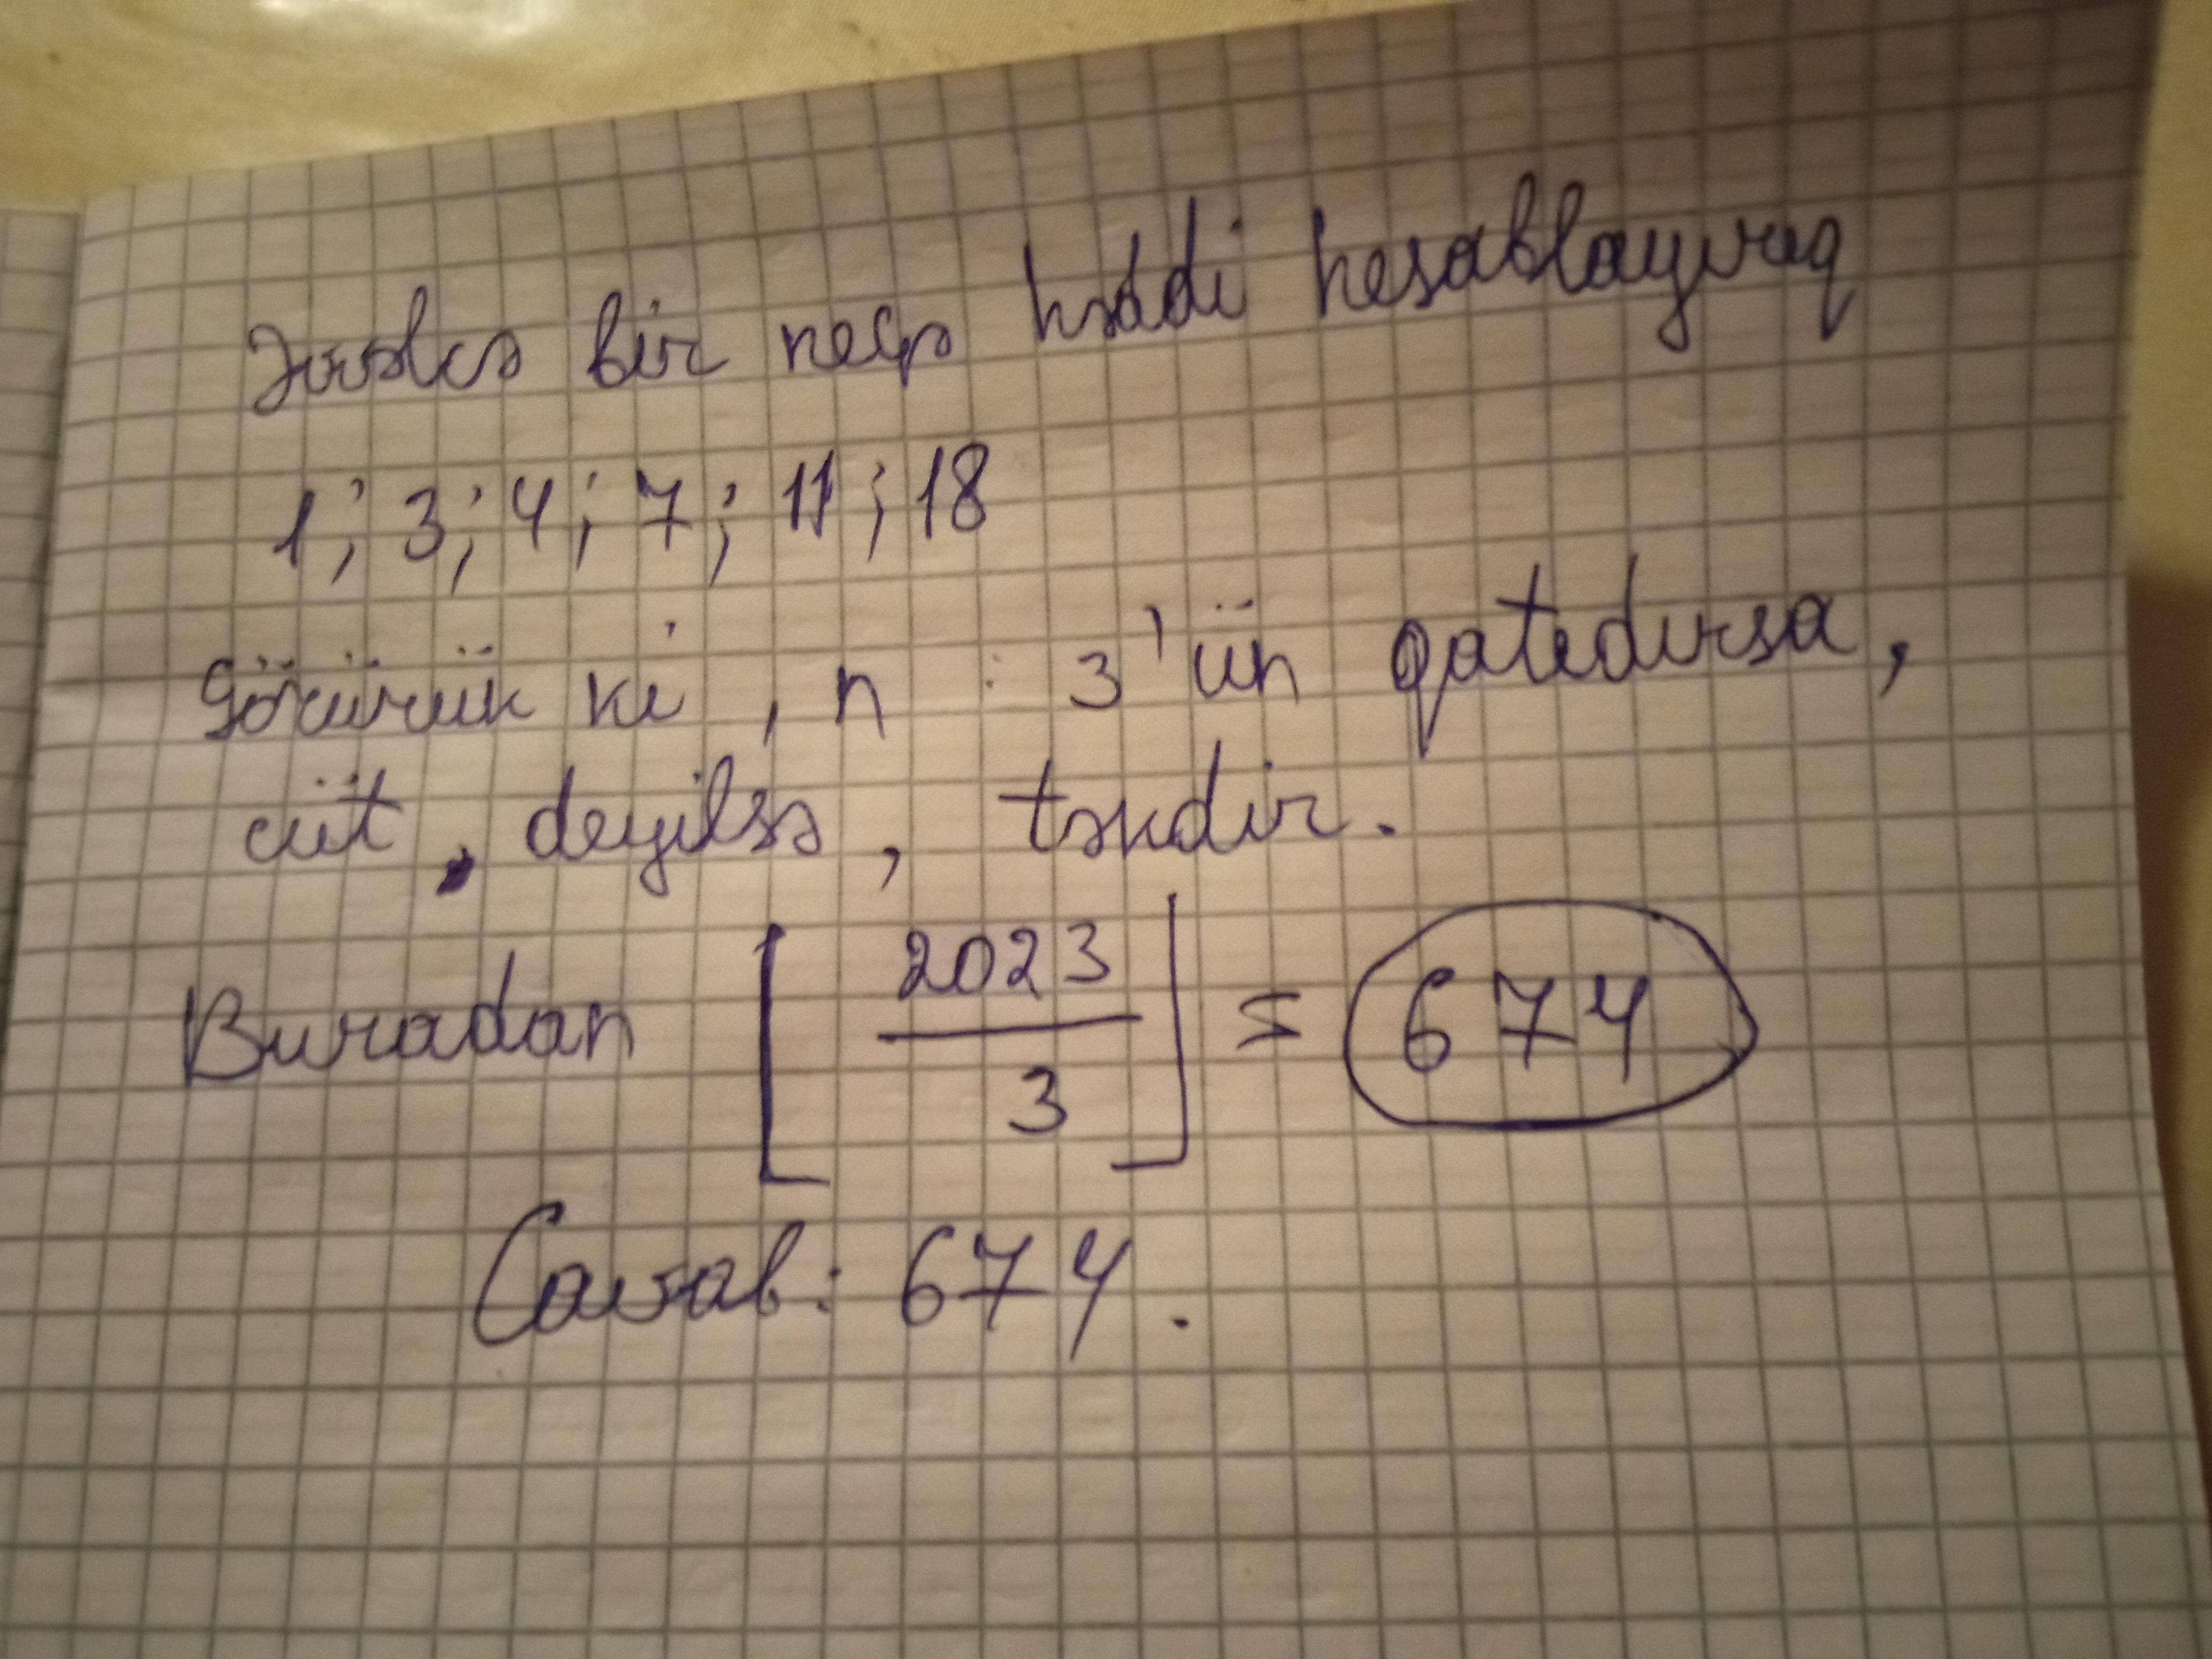 Əvvəlcə bir neçə həddi hesablayıraq
1; 3; 4; 7; 11; 18
görürük ki, n 3'ün qatıdırsa,
cüt, deyilsə, təkdir.
Buradan ⌊2023/3⌋ = 674
Cavab: 674.